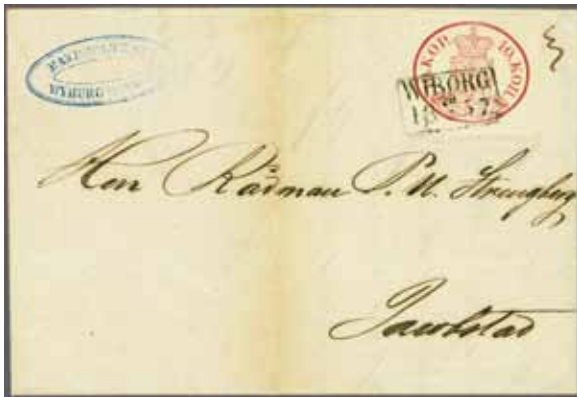 WYBURG
KOP. 10. KOP.
WIBORG
1857
Herr Rådman P. U. Strengberg
Jacobstad